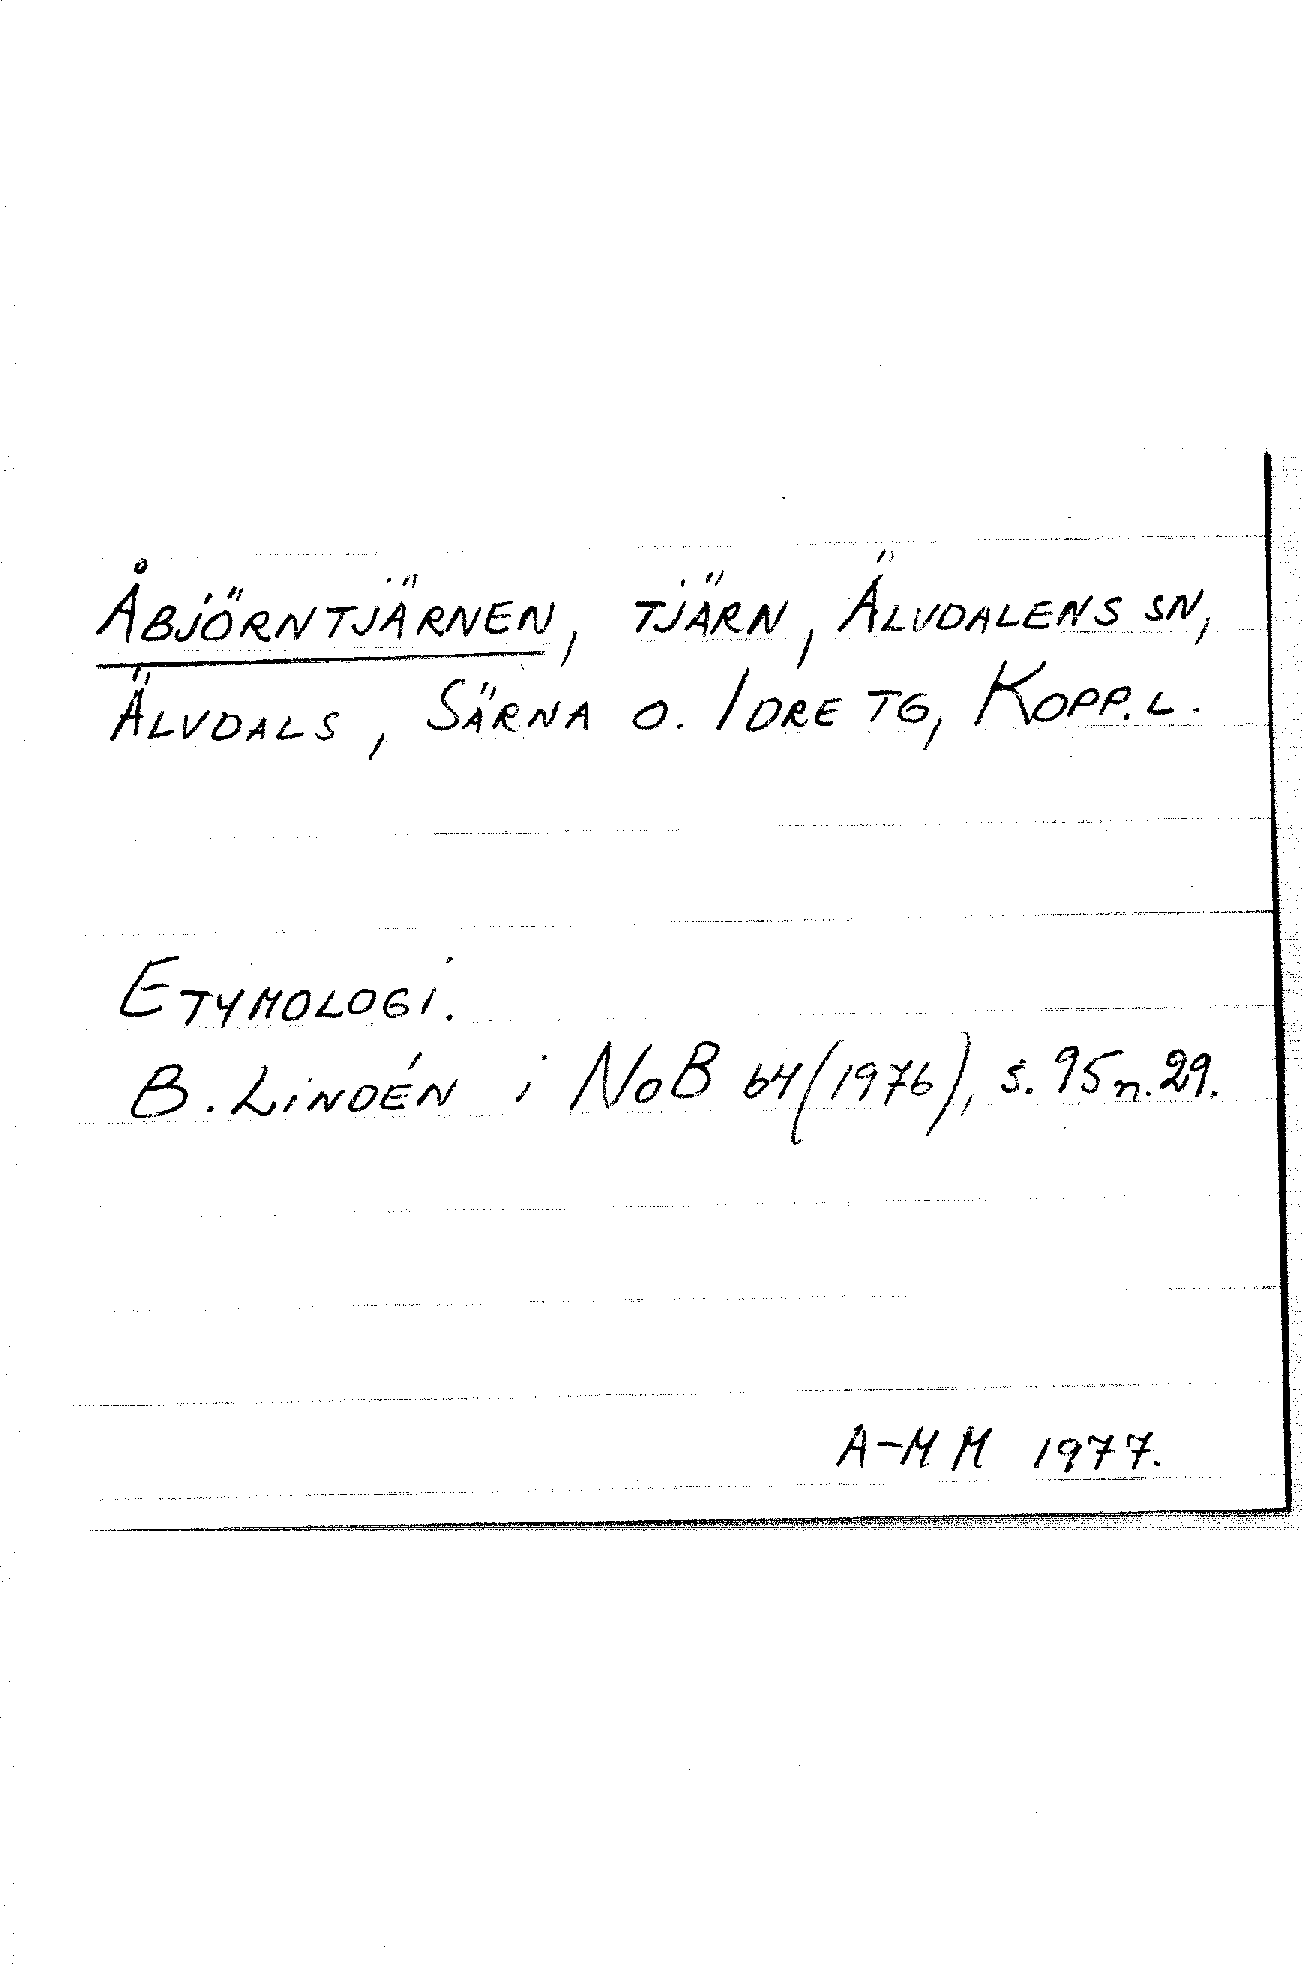 ÅBJÖRNTJÄRNEN, TJÄRN, ÄLVDALENS SN,
ÄLVDALS, SÄRNA O. IDRE TG, KOPP.L.
ETYMOLOGI.
B. LINDÉN i NoB 64 (1976), s. 95 n. 29.
A-M M 1977.